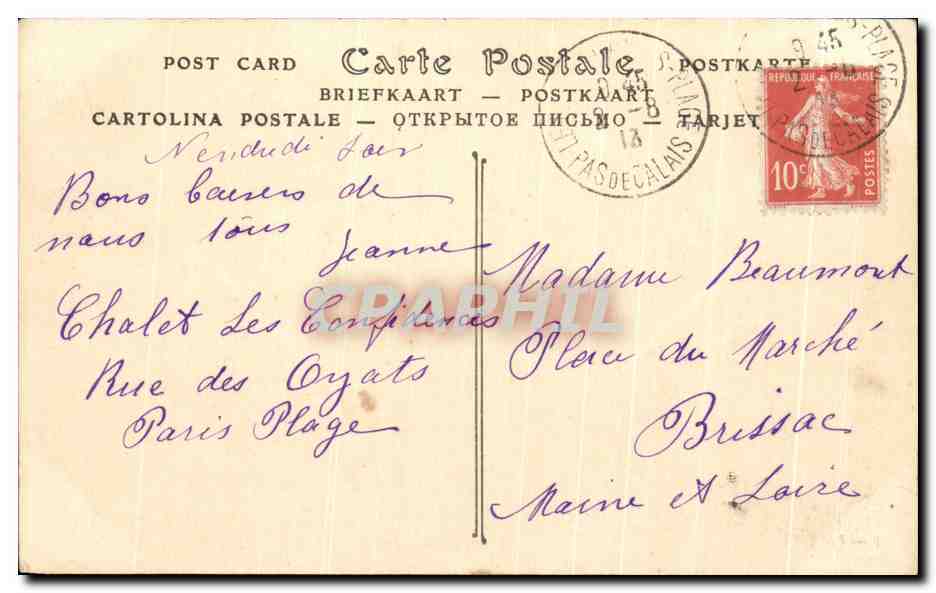 POST CARD Carte Postale POSTKARTE
BRIEFKAART — POSTKAART —
CARTOLINA POSTALE — ОТКРЫТОЕ ПИСЬМО — TARJET
9 45
2 - 8
13
S-PLAGE
PAS DE CALAIS
9 45
S-PLAGE
PAS DE CALAIS
REPUBLIQUE FRANÇAISE
10c
POSTES
Vendredi soir
Bons baisers de
nous tous
Jeanne
Chalet Les Confidences
Rue des Oyats
Paris Plage
Madame Beaumont
Place du Marché
Brissac
Maine et Loire
CPAPHIL